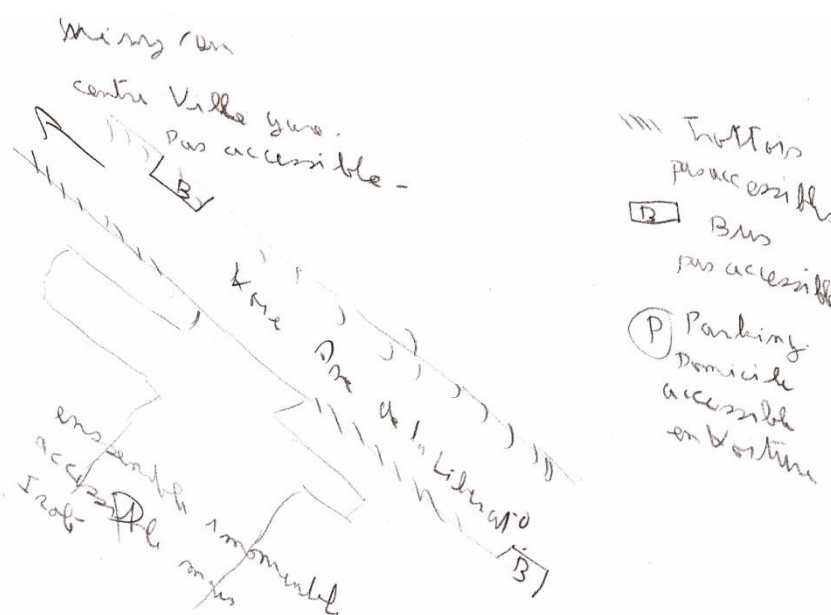 centre Ville gare.
pas accessible -
B
Ave de la Liberatio
B
ensemble immobilier
accessible mais
Isolé
P
Trottoirs
pas accessibles
B Bus
pas accessible
P Parking
Domicile
accessible
en Voiture